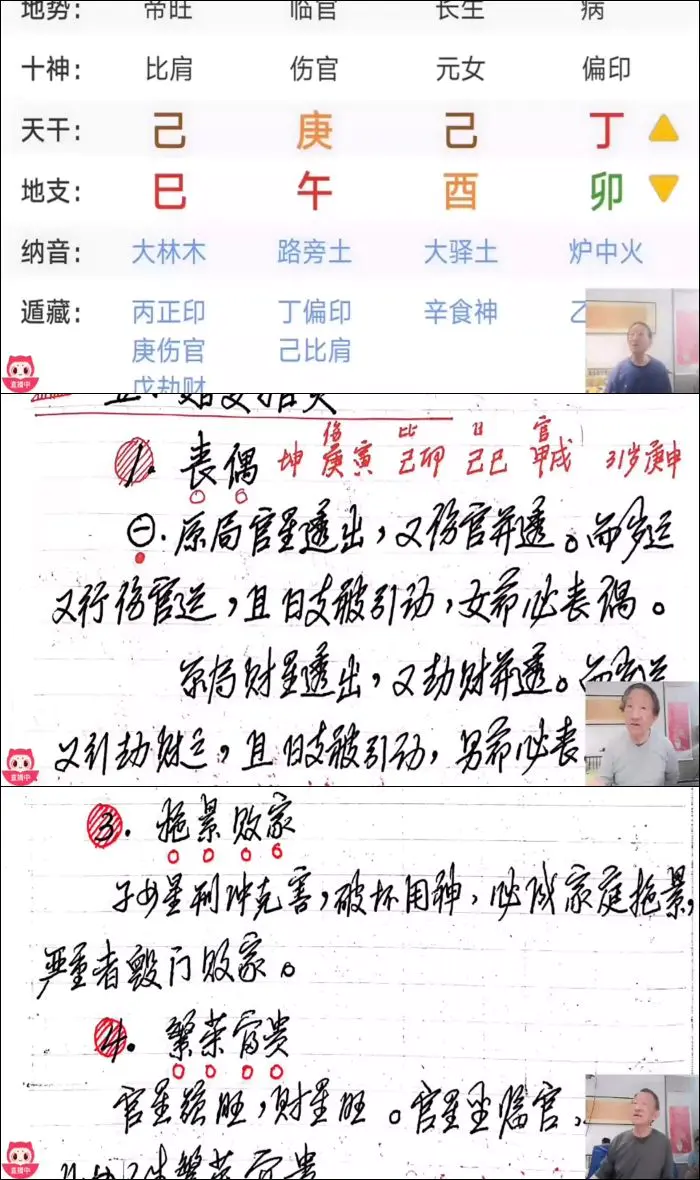 地势: 帝旺 临官 长生 病
十神: 比肩 伤官 元女 偏印
天干: 己 庚 己 丁
地支: 巳 午 酉 卯
纳音: 大林木 路旁土 大驿土 炉中火
遁藏: 丙正印 丁偏印 辛食神 乙
庚伤官 己比肩
戊劫财
直播中
伤 比 日 官
1. 丧偶 坤 庚寅 己卯 己巳 甲戌 31岁庚申
㊀. 原局官星透出,又伤官并透。而岁运
又行伤官运,且日支被引动,女命必丧偶。
原局财星透出,又劫财并透。而岁运
又引劫财运,且日支被引动,男命必丧
直播中
3. 拖累败家
子女星刑冲克害,破坏用神,必成家庭拖累,
严重者毁门败家。
4. 繁荣富贵
官星强旺,财星旺。官星坐临官,
繁荣富贵
直播中